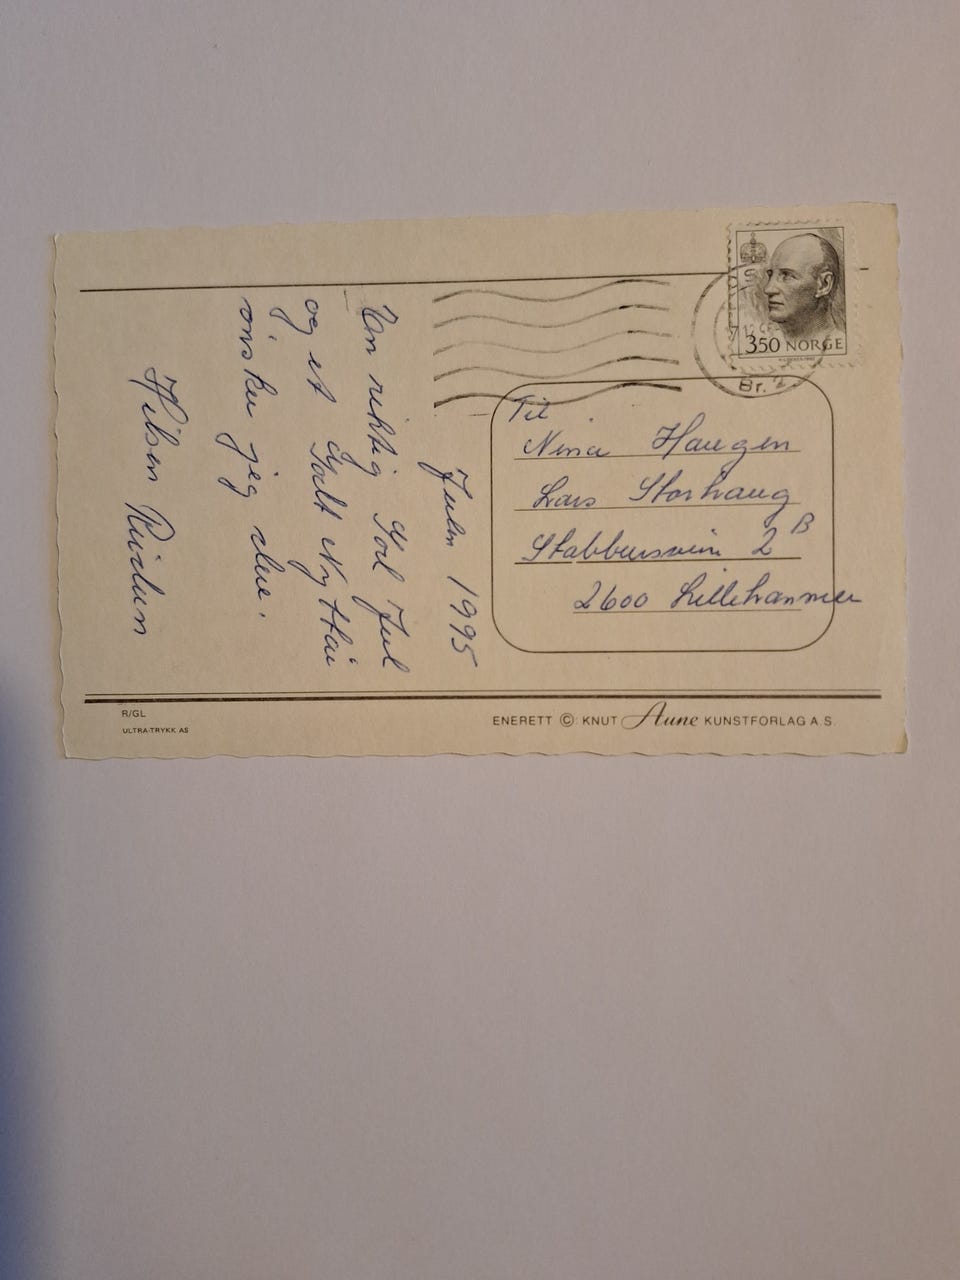 Julen 1995
En riktig God Jul
og et Godt Nytt År
ønsker jeg dere.
Hilsen
Til
Nina Haugen
Lars Storhaug
Stabbursveien 2B
2600 Lillehammer
350 NORGE
Br.
R/GL
ULTRA-TRYKK AS
ENERETT © KNUT Aune KUNSTFORLAG A.S.